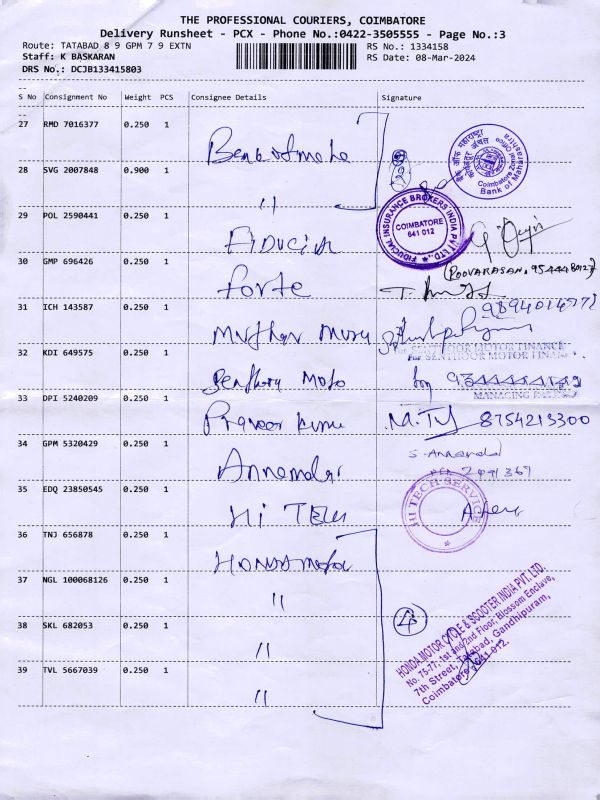 THE PROFESSIONAL COURIERS, COIMBATORE
Delivery Runsheet - PCX - Phone No.:0422-3505555 - Page No.:3
Route: TATABAD 8 9 GPM 7 9 EXTN
RS No.: 1334158
Staff: K BASKARAN
RS Date: 08-Mar-2024
DRS No.: DCJB133415803
S No Consignment No Weight PCS Consignee Details Signature
27 RMD 7016377 0.250 1
बैंक ऑफ महाराष्ट्र
Coimbatore Zonal Office
Bank of Maharashtra
28 SVG 2007848 0.900 1
2
"
29 POL 2590441 0.250 1 Fiducial
FIDUCIAL INSURANCE BROKERS INDIA PVT LTD.,
COIMBATORE
641 012
30 GMP 696426 0.250 1 forte
(POOVARASAN,
31 ICH 143587 0.250 1 Muthu
32 KDI 649575 0.250 1
For SENTHOOR MOTOR FINANCE
MANAGING
33 DPI 5240209 0.250 1 Praveer
8754213300
34 GPM 5320429 0.250 1 Annamalai
35 EDQ 23850545 0.250 1 Hi TECH
HI TECH SERVICE
36 TNJ 656878 0.250 1 HONDA Motor
37 NGL 100068126 0.250 1 "
38 SKL 682053 0.250 1 "
39 TVL 5667039 0.250 1 "
4
HONDA MOTOR CYCLE & SCOOTER INDIA PVT. LTD.
No. 75-77, 1st and 2nd Floor, Blossom Enclave,
7th Street, Tatabad, Gandhipuram,
Coimbatore - 641 012.